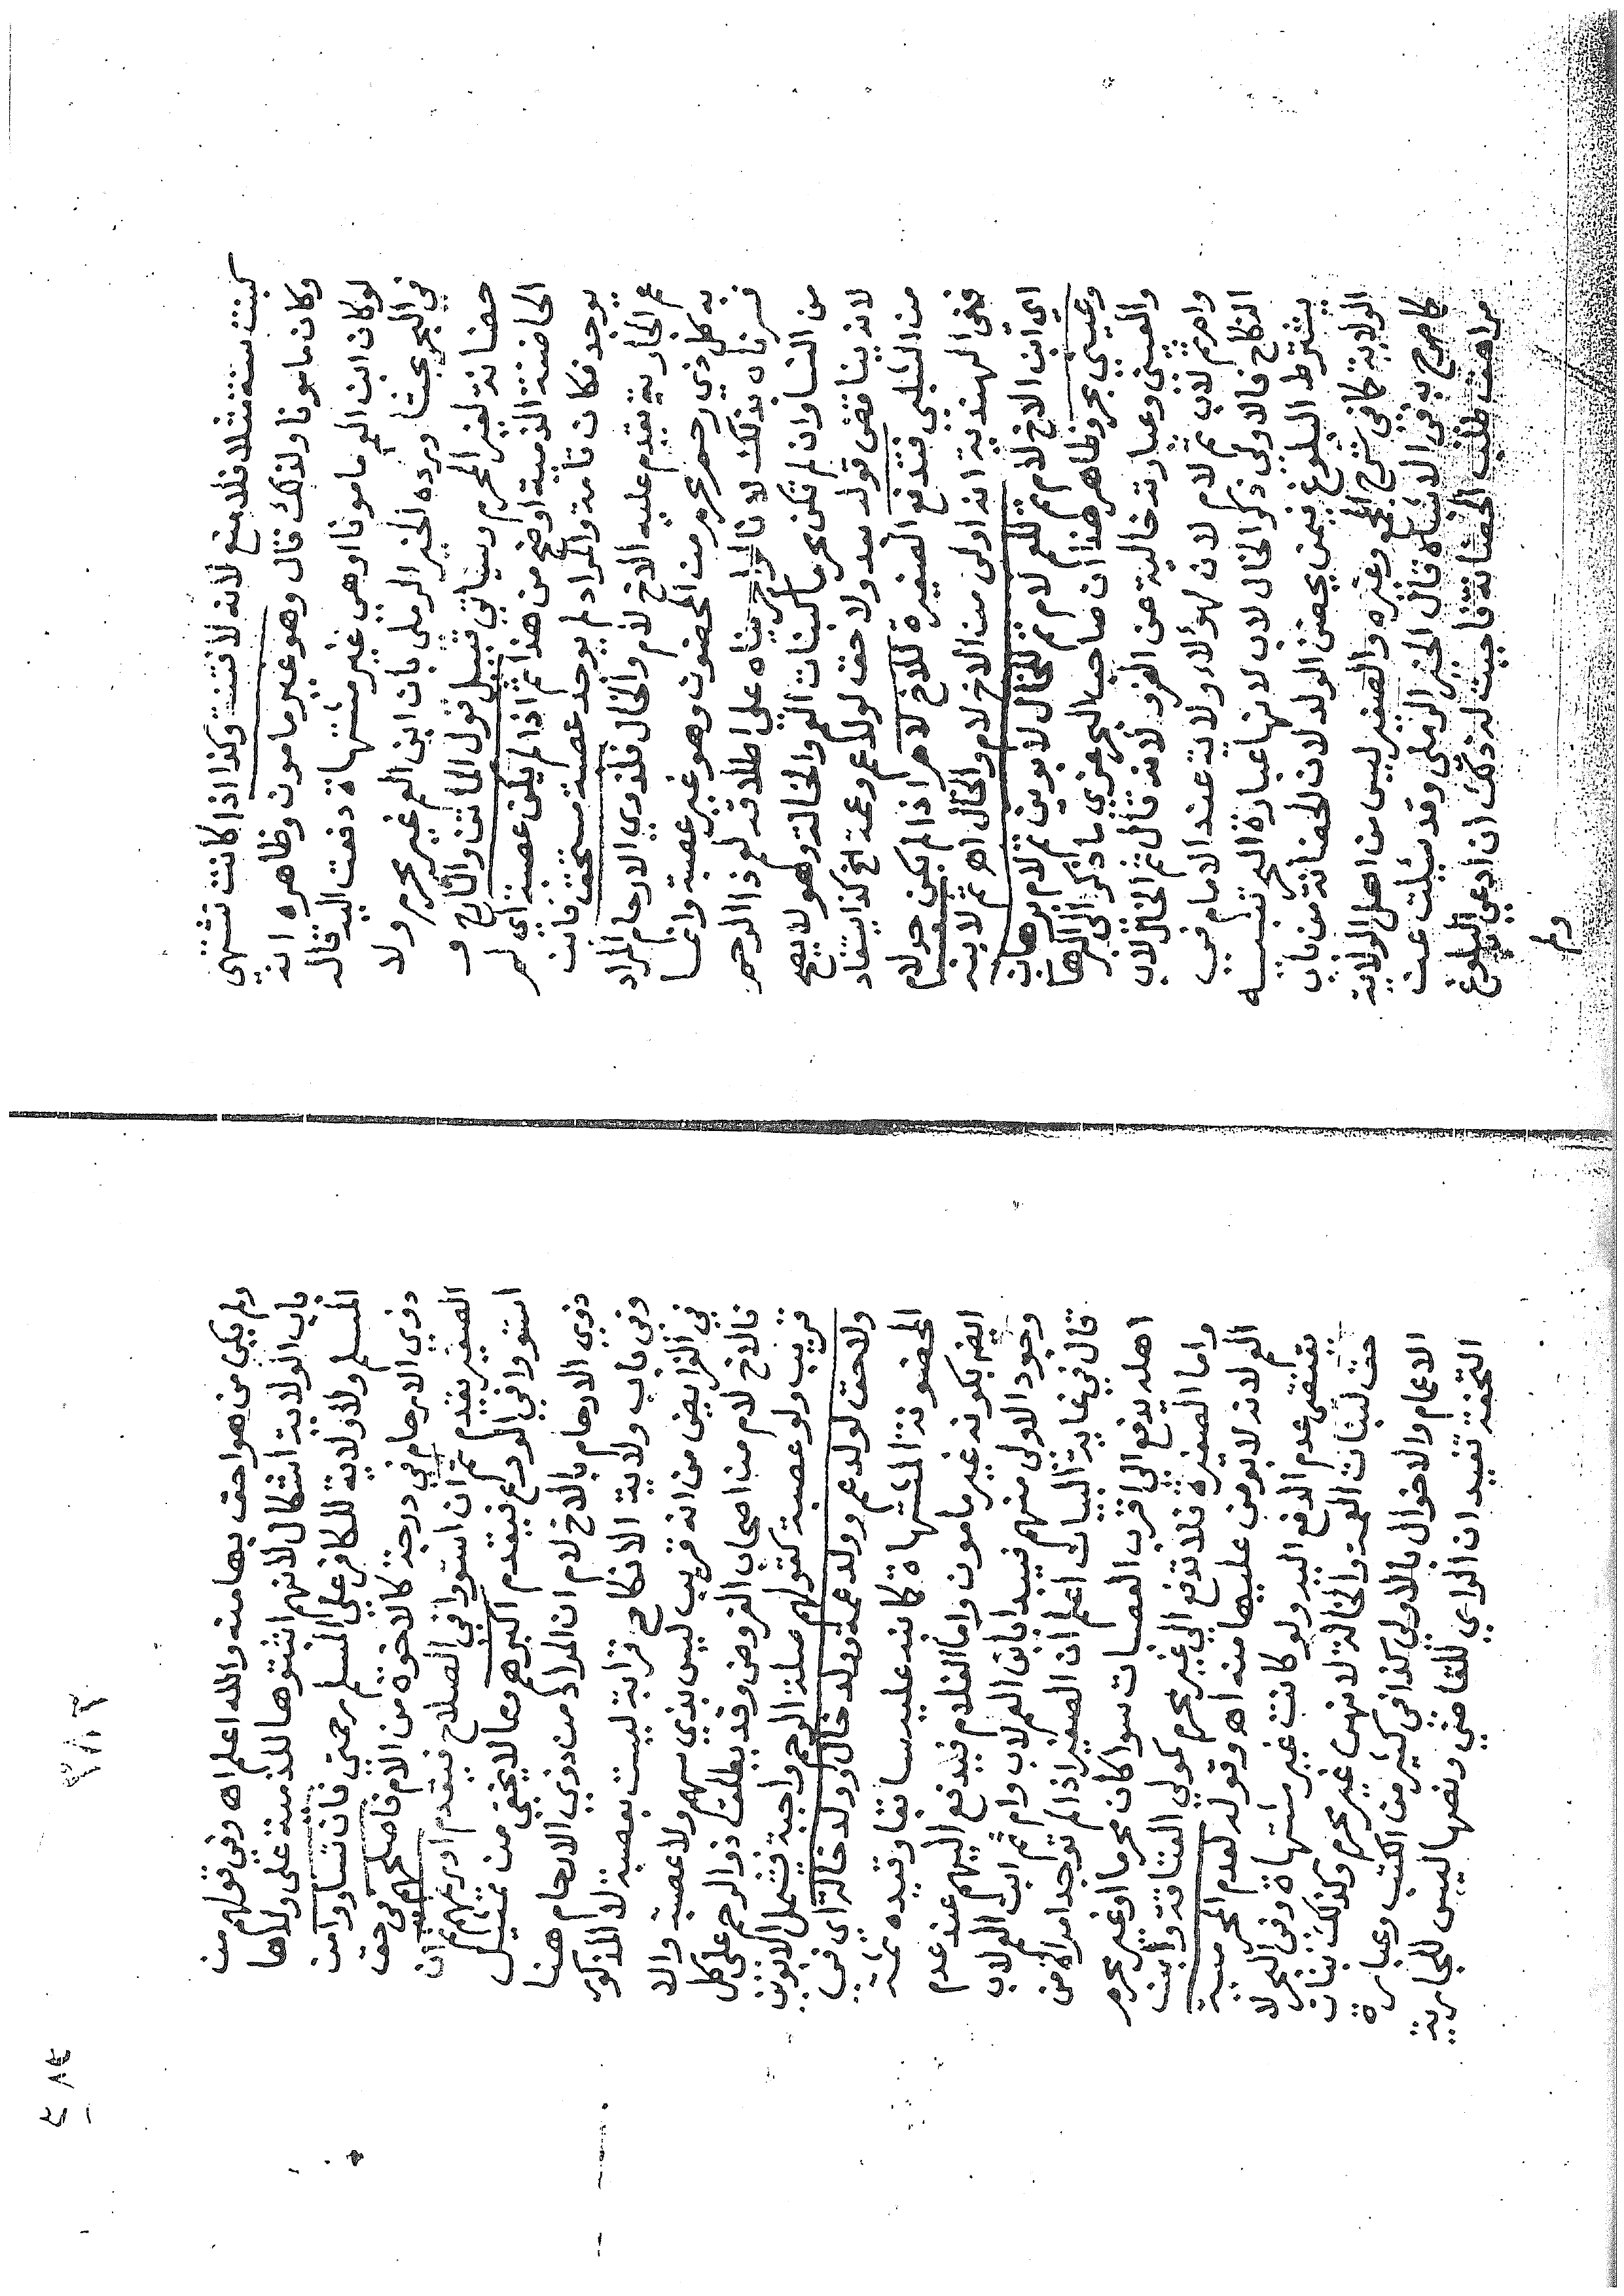 كبنت سنة مثلا فلا منع لانه لا فتنة وكذا اذا كانت تشتهى
وكان مامونا ولذلك قال وهو غير مامون وظاهره انه
لو كان ابن العم مامونا او هي غير مشتهاة دفعت اليه قاله
في البحر بحثا ورده الخير الرملي بان ابن العم غير محرم ولا
حضانة لغير المحرم وسياتي قبيل قول الماتن و
الحاضنة الذمية اوضح من هذا ثم اذا لم يكن عصبة اي لم
يوجد فكان تامة والمراد لم يوجد عصبة مستحق فابن
عم الجارية يقدم عليه الاخ لام والخال فلذوي الارحام المراد
به كل ذي رحم محرم من المحضون وهو غير عصبة وانما
فسرناه بذلك لانا لو اجريناه على اطلاقه لعم ذا الرحم
من النسا وان لم تكن محرما كبنات العم والخالة وهو لا يصح
لانه يناقض قوله بعد ولا حق لولد عم وعمة الخ كذا يستفاد
من الشلبي فتدفع الصغيرة للاخ لام اذا لم يكن
ففي الهندية انه اولى من الاخ لام والخال اهـ ثم لابنه
اي ابن الاخ لام ثم للعم لام ثم للخال لابوين ثم لام برهان
وعيني بحر وظاهر هذا ان صاحب البحر عزى ما ذكر الى البرهان
والعيني وعبارته خالية عن العزو لانه قال ثم الخال لاب
وام ثم لاب ثم لام لان لهؤلاء ولاية عند الامام في
النكاح فالاولى ذكر الخال لاب لانها عبارة البحر تنبيه
يشترط البلوغ فيمن يحضن الولد لان الحضانة من باب
الولاية كما في شرح المجمع وغيره والصغير ليس من اهل الولاية
كما صرح به في الاشباه قال الخير الرملي وقد سئلت عن
مراهق طلب الحضانة فاجبت له ذلك ان ادعى البلوغ
ولم
ولم يكن من هو احق بها منه والله اعلم اهـ وفي قولهم من
باب الولاية اشكال لانهم اثبتوها للذمية على ولدها
المسلم ولا ولاية للكافر على المسلم رحمتي فان تساووا من
ذوي الارحام في درجة كالاخوة من الام فاصلحهم في حق
الصغير يقدم ثم ان استووا في الصلاح فيقدم اورعهم ثم ان
استووا في الورع فيقدم اكبرهم سنا لا يخفى من تمثيل
ذوي الارحام بالاخ لام ان المراد من ذوي الارحام هنا
وفي باب ولاية الانكاح قرابة ليست بعصبة لا المذكور
في الفرايض من انه قريب ليس بذي سهم ولا عصبة والا
فالاخ لام من اصحاب الفروض وقد يطلق ذو الرحم على كل
قريب ولو عصبة كقولهم صلة الرحم واجبة فتشمل الابوين
ولا حق لولد عم وولد عمة وولد خال وولد خالة اي في
المحضونة المشتهاة كما نبه عليه سابقا وقيده ثمة
ايضا بكونه غير مامون واما الغلام فيدفع اليهم عند عدم
وجود الاولى منهم فيبدا بابن العم لاب وام ثم ابن العم لاب
قال في غاية البيان اعلم ان الصغير اذا لم توجد امراة من
اهله يدفع الى اقرب العصبات سوا كان محرما او غير محرم
واما الصغيرة فلا تدفع الى غير محرم كمولى العتاقة وابن
العم لانه لا يؤمن عليها منه اهـ وقوله لعدم المحرمية
يقتضي عدم الدفع اليه ولو كانت غير مشتهاة وفي البحر لا
حق لبنات العمة والخالة لانهن غير محرم وكذلك بنات
الاعمام والاخوال بالاولى كذا في كثير من الكتب وعبارة
التحفة تفيد ان الراي للقاضي ونصها ليس للجارية